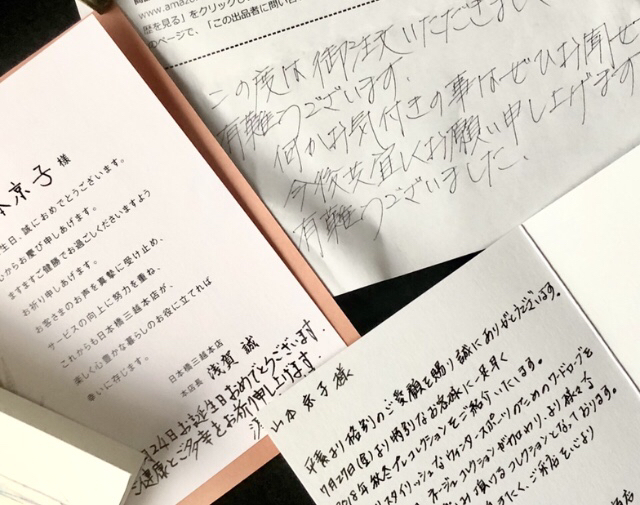 www.amazo
歴を見る」をクリックし
のページで、「この出品者に問い
この度は御注文いただきまして
有難うございます.
何かお気付きの事はぜひお聞せ
今後共宜しくお願い申し上げます
有難うございました.
京子 様
生日、誠におめでとうございます。
心からお慶び申しあげます。
ますますご健勝でお過ごしくださいますよう
お祈り申しあげます。
お客さまのお声を真摯に受け止め、
サービスの向上に努力を重ね、
これからも日本橋三越本店が、
楽しく心豊かな暮らしのお役に立てれば
幸いに存じます。
日本橋三越本店
本店長 浅賀 誠
月24日お誕生日おめでとうございます.
ご健康とご多幸をお祈り申し上げます.
山本 京子 様
平素より格別のご愛顧を賜り誠にありがとうございます。
7月27日(金)より特別なお客様に一足早く
2018年秋冬プレコレクションをご紹介いたします。
スタイリッシュなウィンタースポーツのためのワードローブを
コレクションが加わり、より様々な
頂けるコレクションとなっております。
ご来店を心より